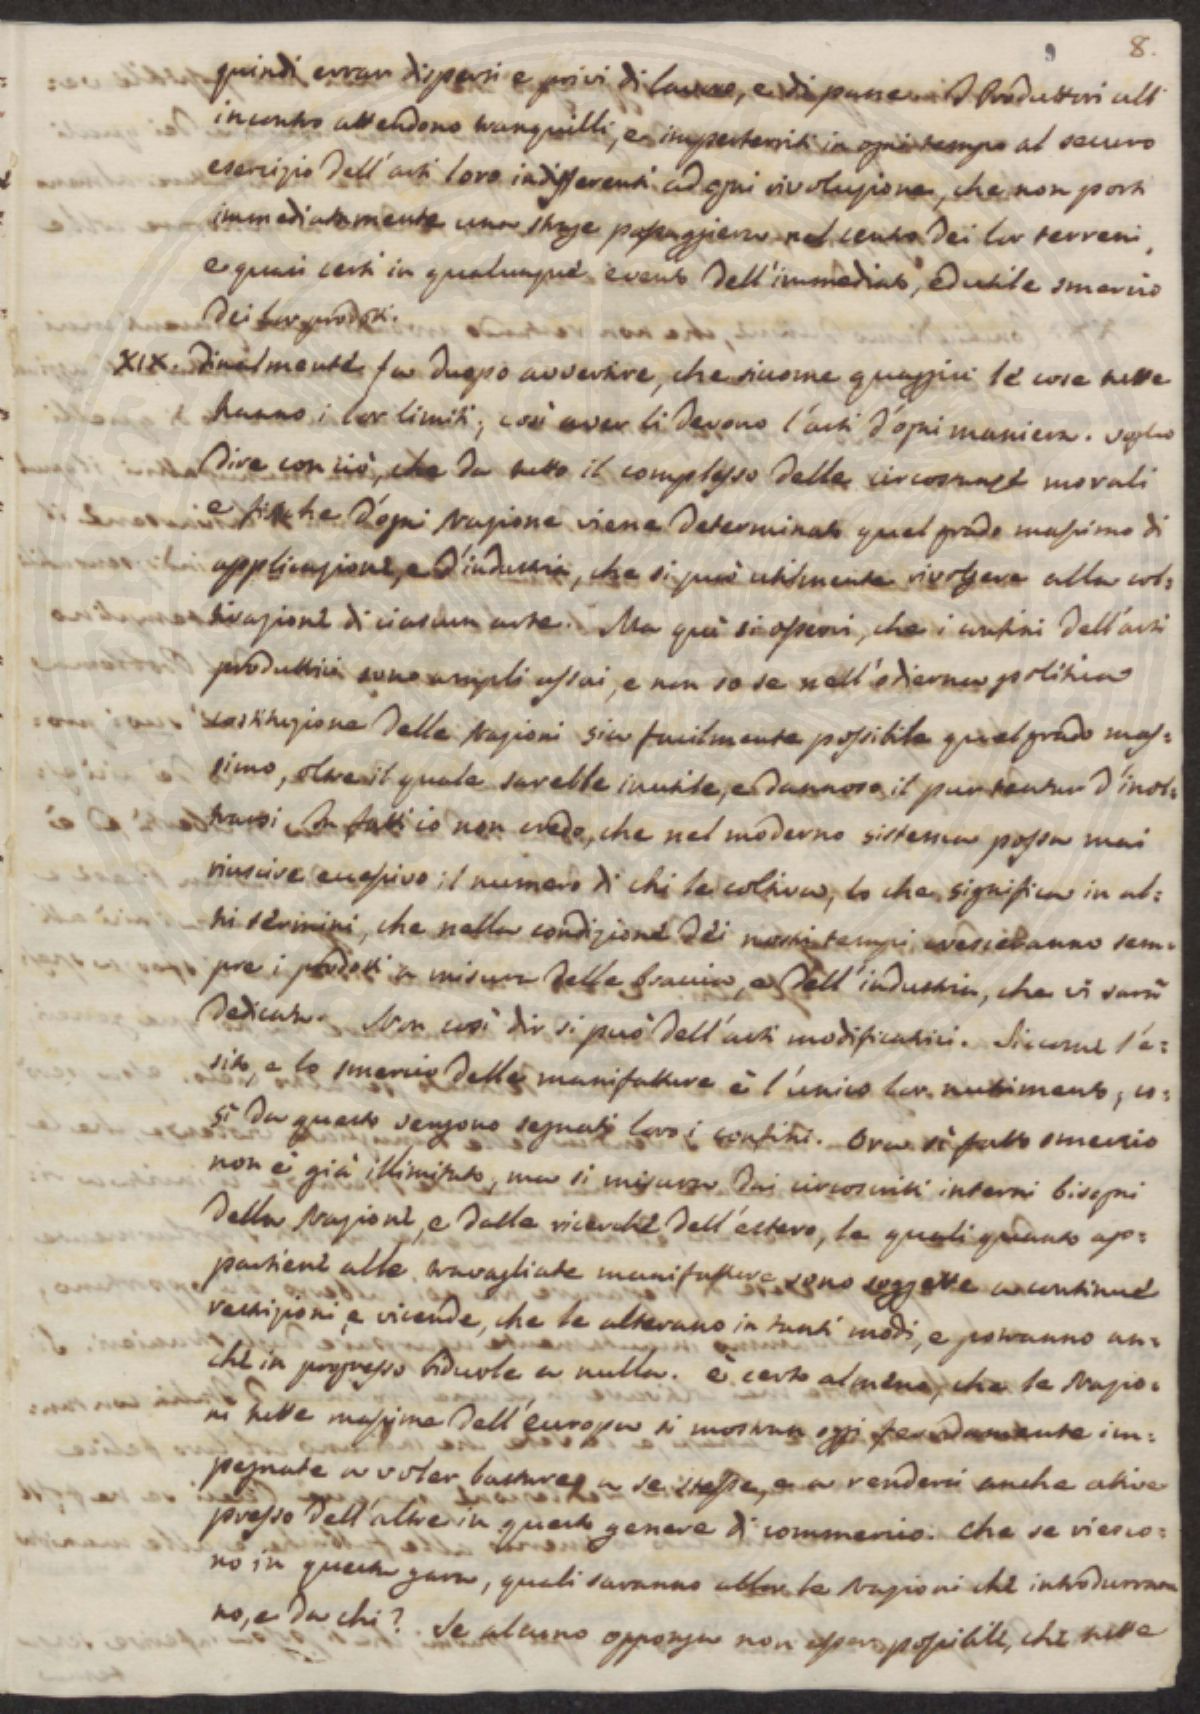 8.
quindi errar dispersi e privi di lavoro, e di pane. I Produttori all'
incontro attendono tranquilli, e imperterriti in ogni tempo al securo
esercizio dell'arti loro indifferenti ad ogni rivoluzione, che non porti
immediatamente una strage passaggiera nel centro dei lor terreni,
e quasi certi in qualunque evento dell'immediato, ed utile smercio
dei lor prodotti.
XIX. Finalmente fa duopo avvertire, che siccome quaggiù le cose tutte
hanno i lor limiti, così aver li devono l'arti d'ogni maniera. Voglio
dire con ciò, che da tutto il complesso delle circostanze morali
e fisiche d'ogni Nazione viene determinato quel grado massimo di
applicazione, e d'industria, che si può utilmente rivolgere alla col=
tivazione di ciascun arte. Ma quì si osservi, che i confini dell'arti
produttrici sono ampli assai, e non so se nell'odierna politica
costituzione delle Nazioni sia facilmente possibile quel grado mas=
simo, oltre il quale sarebbe inutile, e dannoso il pur tentar d'inol=
trarsi. In fatti io non credo, che nel moderno sistema possa mai
riuscire eccessivo il numero di chi le coltiva, lo che significa in al=
tri termini, che nella condizione dei nostri tempi cresceranno sem=
pre i prodotti a misura delle braccia, e dell'industria, che vi sarà
dedicata. Non così dir si può dell'arti modificatrici. Siccome l'e=
sito, e lo smercio delle manifatture è l'unico lor nutrimento, co=
sì da questo vengono segnati loro i confini. Ora sì fatto smercio
non è già illimitato, ma si misura dai circoscritti interni bisogni
della Nazione, e dalle ricerche dell'estero, le quali quanto ap=
partiene alle travagliate manifatture sono soggette a continue
restrizioni, e vicende, che le alterano in tanti modi, e potranno an=
che in progresso ridurle a nulla. È certo almeno, che le Nazio=
ni tutte massime dell'Europa si mostran oggi fervidamente im=
pegnate a voler bastare a se stesse, e a rendersi anche attive
presso dell'altre in questo genere di commercio. Che se riesco=
no in questa gara, quali saranno allor le Nazioni che introdurran=
no, e da chi? Se alcuno opponga non esser possibile, che tutte